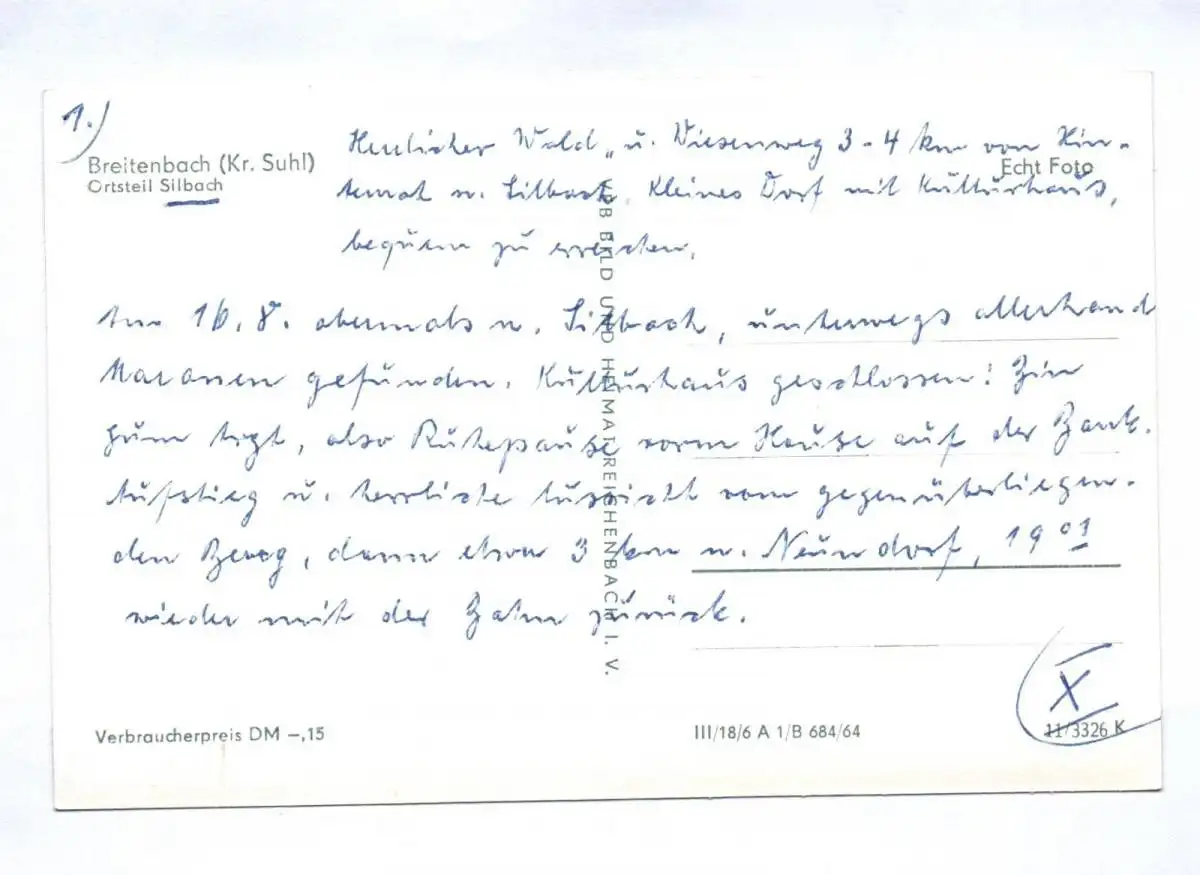 1.)
Breitenbach (Kr. Suhl)
Ortsteil Silbach
Echt Foto
Herrlicher Wald „u. Wiesenweg 3-4 km von Hin-
ternah n. Silbach. Kleines Dorf mit Kulturhaus,
bequem zu erreichen.
Am 16.8. abermals n. Silbach, unterwegs allerhand
Maronen gefunden. Kulturhaus geschlossen!
also Ruhepause vorm Hause auf der Bank.
Aufstieg u. herrliche Aussicht vom gegenüberliegen-
den Berg, dann etwa 3 km n. Neundorf, 19 01
wieder mit der Bahn zurück.
VEB BILD UND HEIMAT REICHENBACH I. V.
Verbraucherpreis DM –,15
III/18/6 A 1/B 684/64
X
11/3326 K